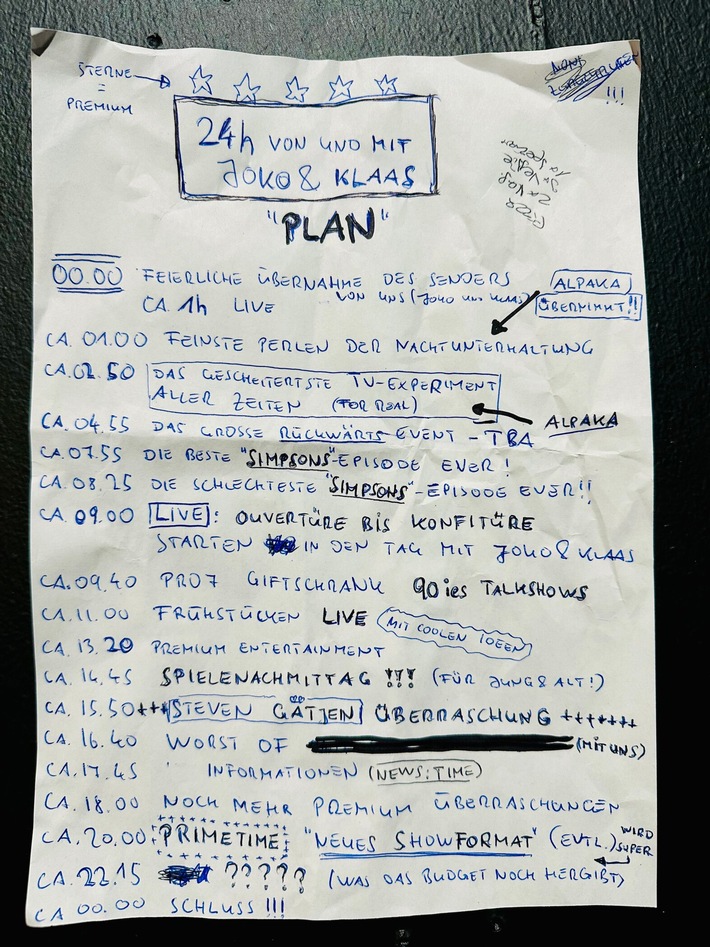 STERNE
=
PREMIUM
!!!
24h VON UND MIT
JOKO & KLAAS
"PLAN"
00.00 FEIERLICHE ÜBERNAHME DES SENDERS
VON UNS (JOKO UND KLAAS)
CA. 1h LIVE
ALPAKA
ÜBERNIMMT!!
CA. 01.00 FEINSTE PERLEN DER NACHTUNTERHALTUNG
CA. 02.50 DAS GESCHEITERTSTE TV-EXPERIMENT
ALLER ZEITEN (FOR REAL)
ALPAKA
CA. 04.55 DAS GROSSE RÜCKWÄRTS EVENT - TBA
CA. 07.55 DIE BESTE "SIMPSONS"-EPISODE EVER!
CA. 08.25 DIE SCHLECHTESTE "SIMPSONS"-EPISODE EVER!!
CA. 09.00 LIVE: OUVERTÜRE BIS KONFITÜRE
STARTEN IN DEN TAG MIT JOKO & KLAAS
CA. 09.40 PRO7 GIFTSCHRANK 90ies TALKSHOWS
CA. 11.00 FRÜHSTÜCKEN LIVE MIT COOLEN IDEEN
CA. 13.20 PREMIUM ENTERTAINMENT
CA. 14.45 SPIELENACHMITTAG !!! (FÜR JUNG & ALT!)
CA. 15.50 +++ STEVEN GÄTJEN ÜBERRASCHUNG +++++++
CA. 16.40 WORST OF (MIT UNS)
CA. 17.45 INFORMATIONEN (NEWS:TIME)
CA. 18.00 NOCH MEHR PREMIUM ÜBERRASCHUNGEN
CA. 20.00 PRIMETIME: "NEUES SHOWFORMAT" (EVTL.) WIRD SUPER
CA. 22.15 ????? (WAS DAS BUDGET NOCH HERGIBT)
CA 00.00 SCHLUSS !!!